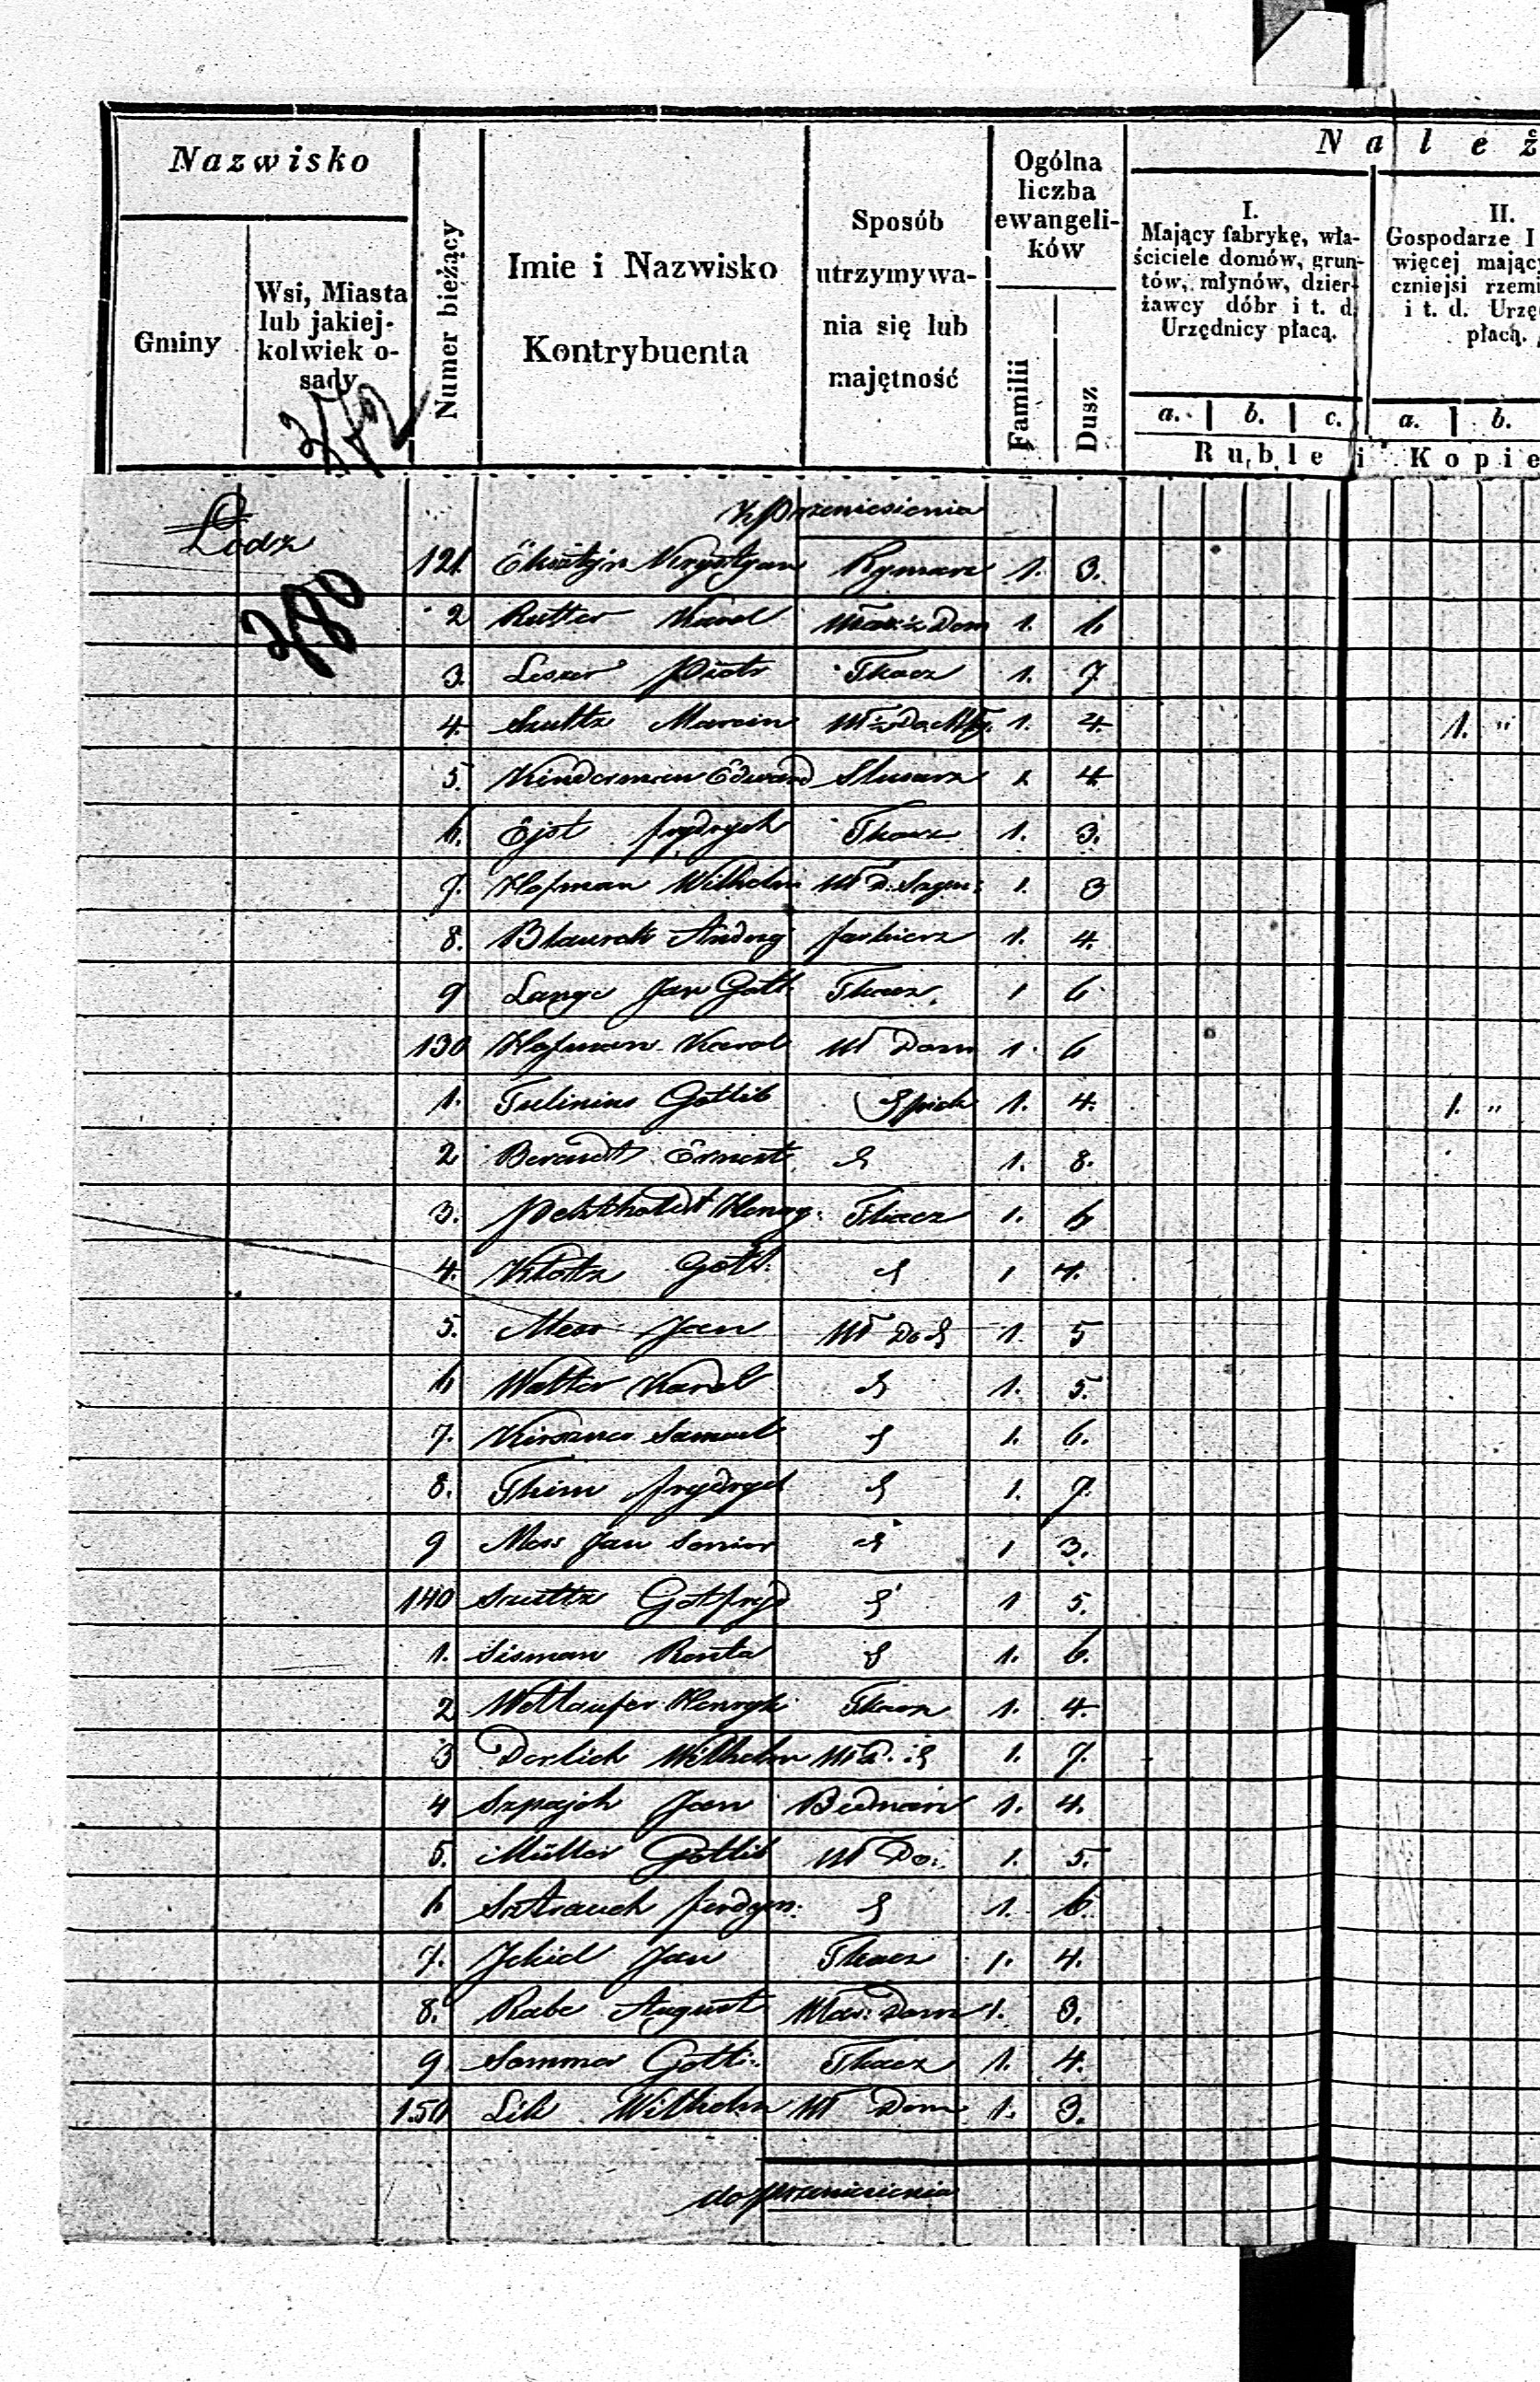 Nazwisko
Gminy
Wsi, Miasta
lub jakiej-
kolwiek o-
sady
Numer bieżący
Imie i Nazwisko
Kontrybuenta
Sposób
utrzymywa-
nia się lub
majętność
Ogólna
liczba
ewangeli-
ków
Familii
Dusz
N a l e ż
I.
Mający fabrykę, wła-
ściciele domów, grun-
tów, młynów, dzier-
żawcy dóbr i t. d.
Urzędnicy płacą.
II.
Gospodarze I
więcej mający
czniejsi rzemi
i t. d. Urzę
płacą.
a. b. c. a. b.
Ruble i Kopie
372
Łódz
380
z przeniesienia
121 Krystyan Rymarz 1. 3.
2 Rutter Karol Właś: Dom 1. 6
3. Leszer Piotr Tkacz 1. 7
4. Szultz Marcin 1. 4. 1. "
5. Kinderman Edward Slusarz 1 4
6. Ejst frydrych Tkacz 1. 3.
7. Hofman Wilhelm Wł D. 1. 3
8. Blaurok Andrzej farbierz 1. 4.
9 Lange Jan Gotl: Tkacz 1 6
130 Hofman Karol Wł Dom 1. 6
1. Tulinius Gotlib 1. 4. 1. "
2 Berandt Ernest 1. 8.
3. Henry: Tkacz 1. 6
4. Klotz Gotl: 1 4.
5. Mess Jan Wł Do 1. 5
6 Walter Karol 1. 5.
7. Samuel 1. 6.
8. Thim frydrych 1. 7.
9 Mess Jan Senior 1 3.
140 Szultz Gotfryd 1 5.
1. Sisman 1. 6.
2 Wetlaufer Henryk Tkacz 1. 4.
3 Derlich Wilhelm Wł d. 1. 7.
4 Szpajch Jan Bednarz 1. 4.
5. Müller Gotlib Wł Do: 1. 5.
6 Sztrauch ferdyn: 1. 6.
7. Jekiel Jan Tkacz 1. 4.
8. Rabe August Właś: Dom 1. 3.
9. Sommer Gotli: Tkacz 1. 4.
150 Lik Wilhelm Wł Dom 1. 3.
do przeniesienia